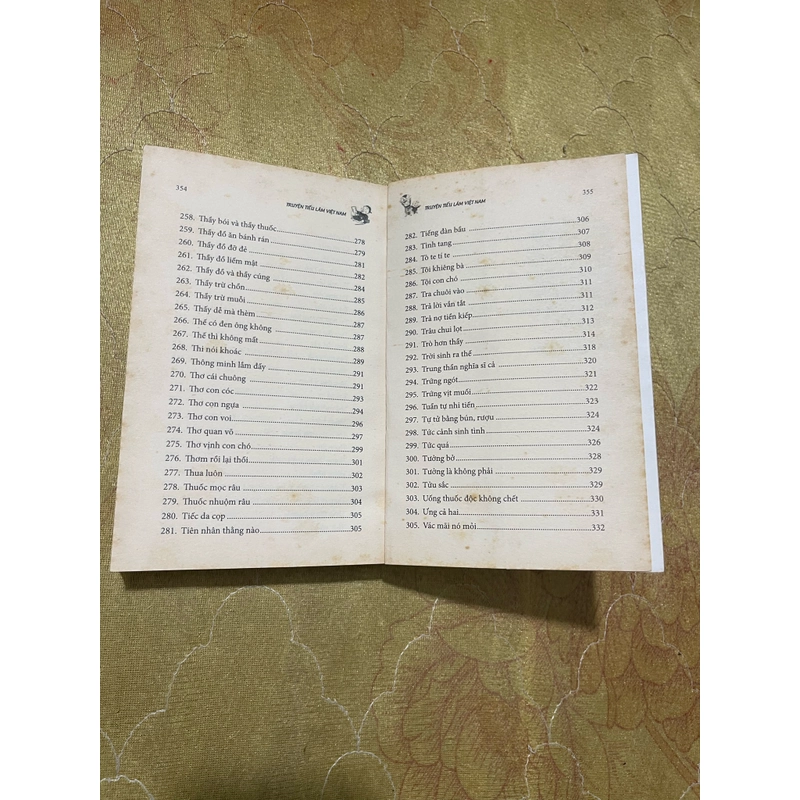 354
TRUYỆN TIẾU LÂM VIỆT NAM
258. Thầy bói và thầy thuốc 278
259. Thầy đồ ăn bánh rán 279
260. Thầy đồ đỡ đẻ 281
261. Thầy đồ liếm mật 282
262. Thầy đồ và thầy cúng 284
263. Thầy trừ chồn 285
264. Thầy trừ muỗi 286
265. Thấy dễ mà thèm 287
266. Thế có đen ông không 287
267. Thế thì không mất 288
268. Thi nói khoác 289
269. Thông minh lắm đấy 291
270. Thơ cái chuông 291
271. Thơ con cóc 293
272. Thơ con ngựa 294
273. Thơ con voi 296
274. Thơ quan võ 297
275. Thơ vịnh con chó 299
276. Thơm rồi lại thối 301
277. Thua luôn 302
278. Thuốc mọc râu 303
279. Thuốc nhuộm râu 304
280. Tiếc da cọp 305
281. Tiên nhân thằng nào 305
355
TRUYỆN TIẾU LÂM VIỆT NAM
282. Tiếng đàn bầu 306
283. Tình tang 307
284. Tò te tí te 308
285. Tội khiêng bà 309
286. Tội con chó 310
287. Tra chuôi vào 311
288. Trả lời vắn tắt 311
289. Trả nợ tiền kiếp 312
290. Tràu chui lọt 313
291. Trò hơn thầy 314
292. Trời sinh ra thế 318
293. Trung thần nghĩa sĩ cả 320
294. Trứng ngót 321
295. Trứng vịt muối 322
296. Tuần tự nhi tiến 323
297. Tự tử bằng bún, rượu 324
298. Tức cảnh sinh tình 324
299. Tức quá 326
300. Tưởng bở 328
301. Tưởng là không phải 329
302. Tửu sắc 329
303. Uống thuốc độc không chết 330
304. Ưng cả hai 331
305. Vác mãi nó mỏi 332